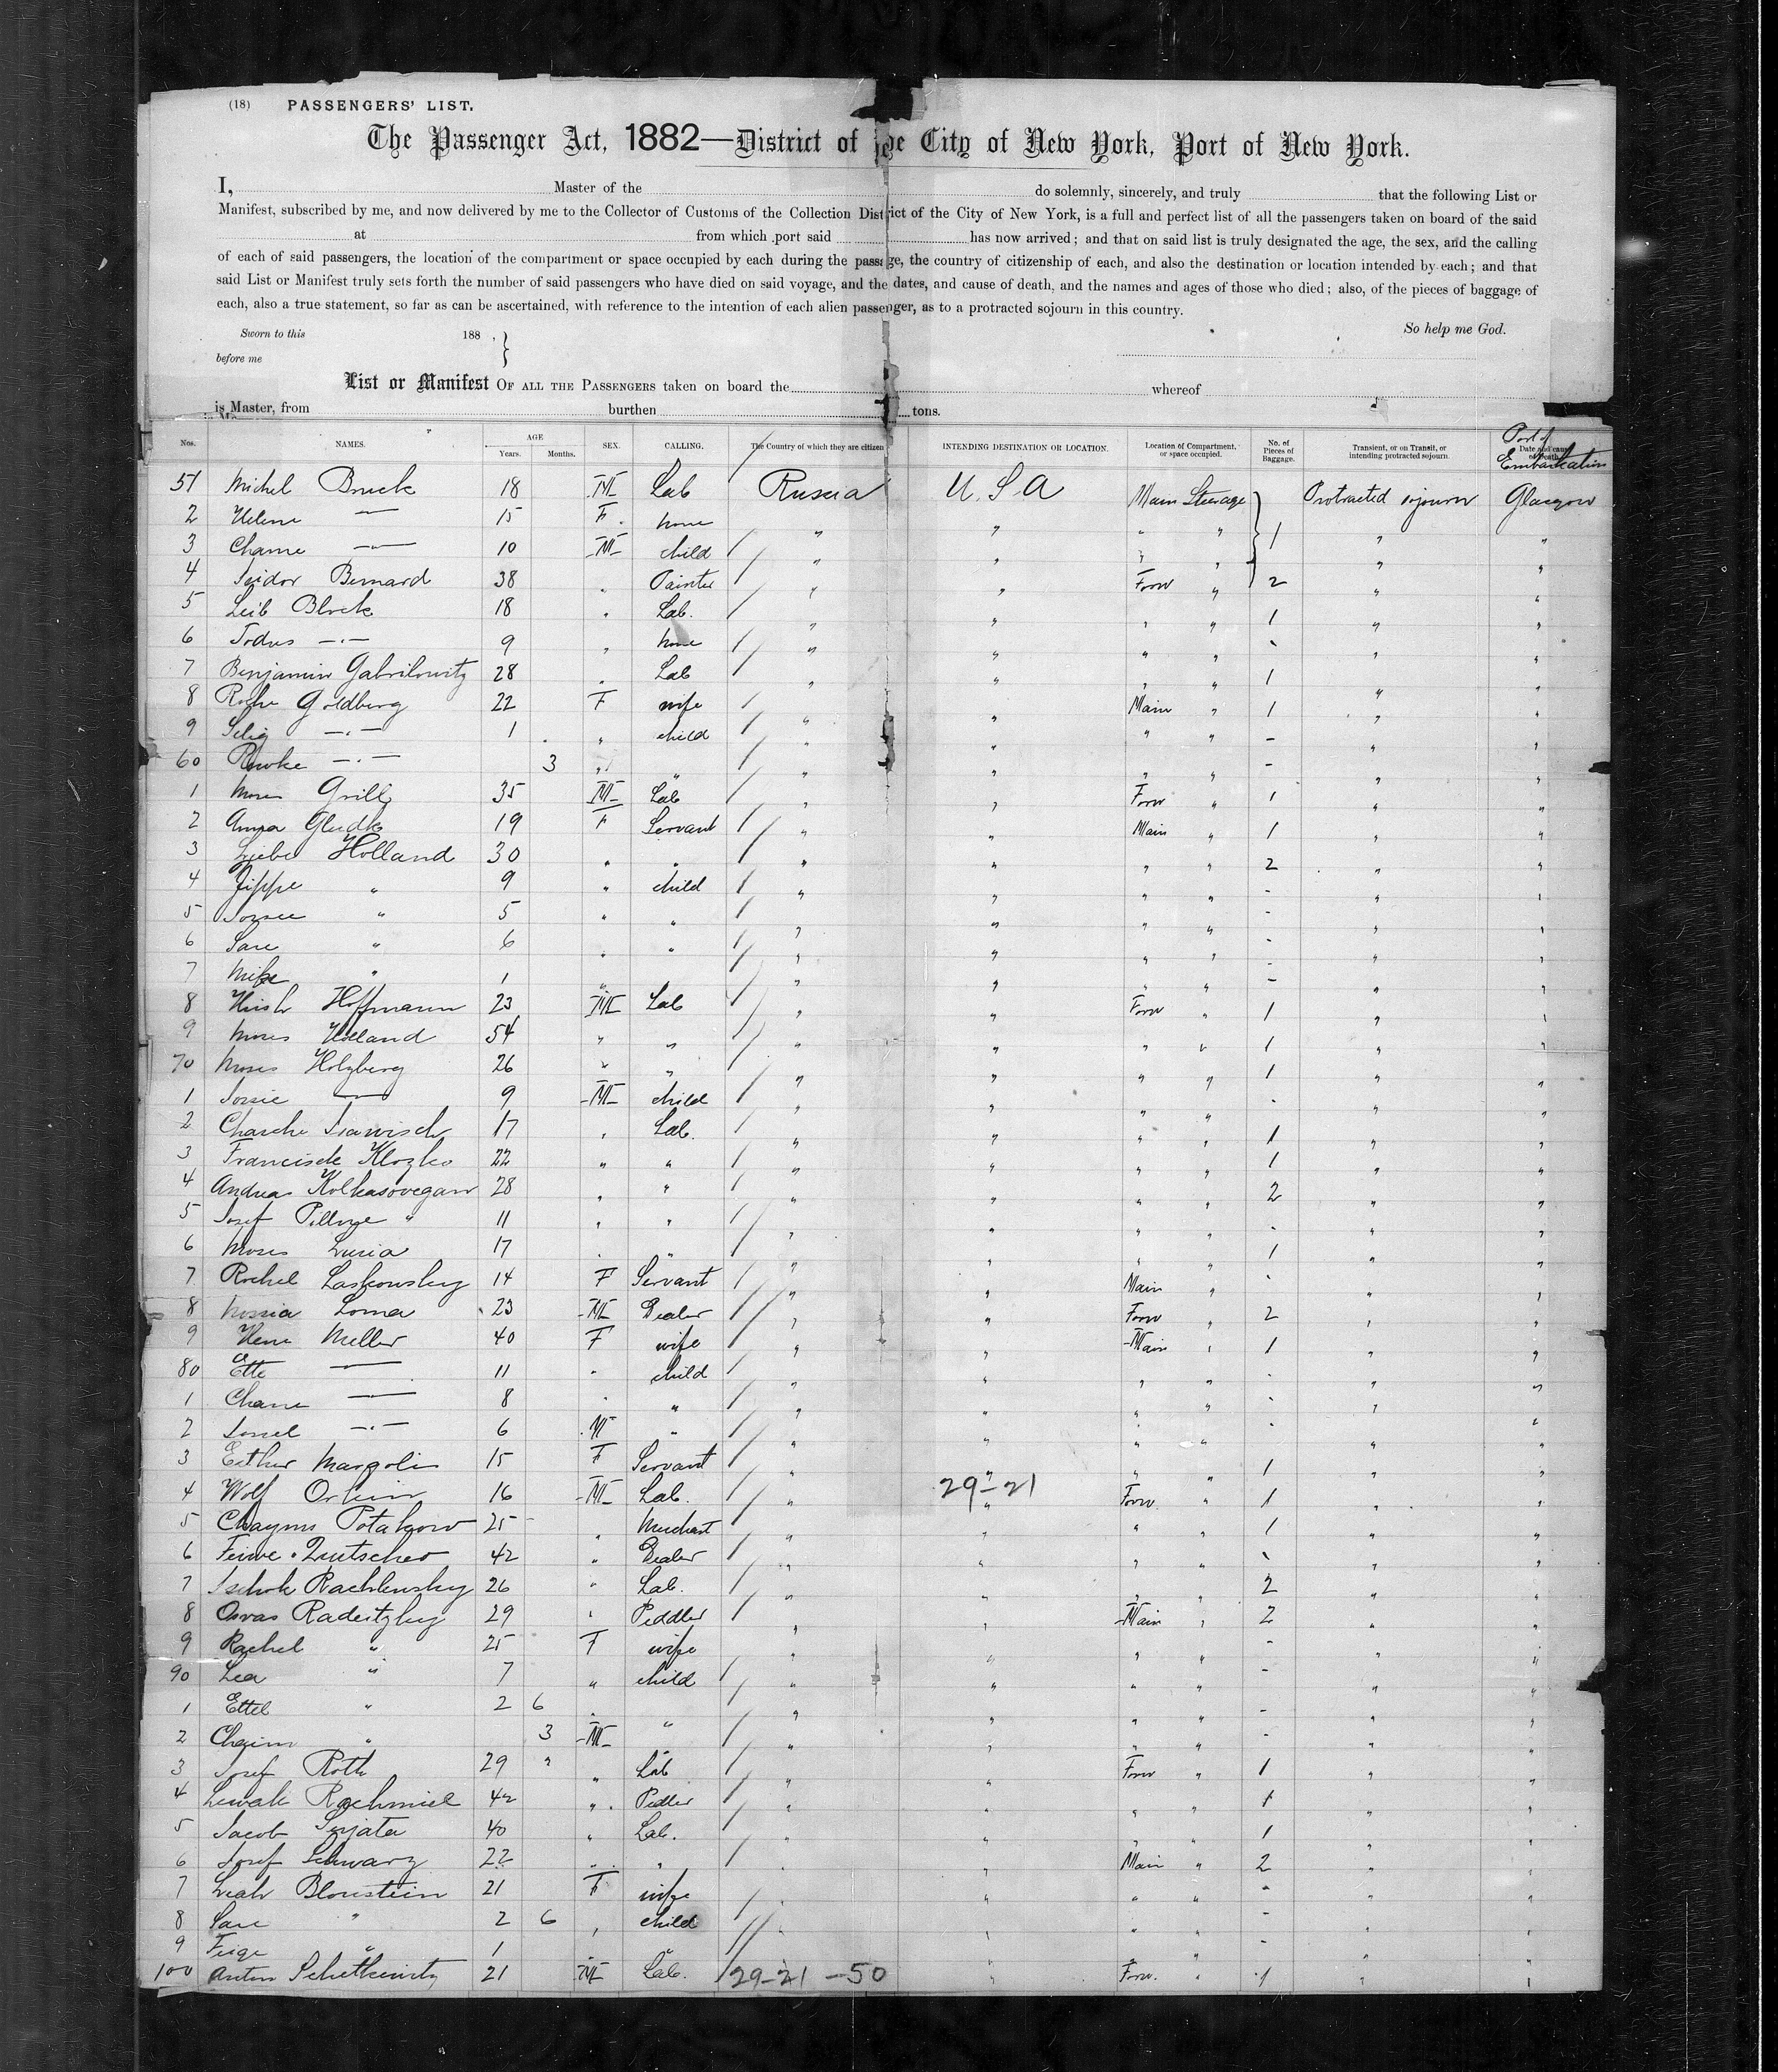 (18) PASSENGERS' LIST.
The Passenger Act, 1882—District of the City of New York, Port of New York.
I, Master of the do solemnly, sincerely, and truly that the following List or
Manifest, subscribed by me, and now delivered by me to the Collector of Customs of the Collection District of the City of New York, is a full and perfect list of all the passengers taken on board of the said
at from which port said has now arrived; and that on said list is truly designated the age, the sex, and the calling
of each of said passengers, the location of the compartment or space occupied by each during the passage, the country of citizenship of each, and also the destination or location intended by each; and that
said List or Manifest truly sets forth the number of said passengers who have died on said voyage, and the dates, and cause of death, and the names and ages of those who died; also, of the pieces of baggage of
each, also a true statement, so far as can be ascertained, with reference to the intention of each alien passenger, as to a protracted sojourn in this country.
Sworn to this 188 , } So help me God.
before me
List or Manifest OF ALL THE PASSENGERS taken on board the whereof
is Master, from burthen tons.
Nos. NAMES. AGE Years. Months. SEX. CALLING. The Country of which they are citizen INTENDING DESTINATION OR LOCATION. Location of Compartment, or space occupied. No. of Pieces of Baggage. Transient, or on Transit, or intending protracted sojourn. Date and cause of Death. Port of Embarkation
51 Michel Bruck 18 M Lab Russia U.S.A Main Steerage Protracted sojourn Glasgow
2 Helene — 15 F. none " " " " 1 " "
3 Chame — 10 M child " " " " " "
4 Isidor Bernard 38 " Painter " " Forw " 2 " "
5 Leib Block 18 " Lab. " " " " 1 " "
6 Todus —.— 9 " none " " " " - " "
7 Benjamin Gabrilowitz 28 " Lab " " " " 1 " "
8 Goldberg 22 F wife " " Main " 1 " "
9 Selig —.— 1 " child " " " " - " "
60 Rewke —.— 3 " " " " " " - " "
1 Moses Grill 35 M Lab " " Forw " 1 " "
2 Anna 19 F Servant " " Main " 1 " "
3 Liebe Holland 30 " " " " " " 2 " "
4 Zippe " 9 " child " " " " - " "
5 " 5 " " " " " " - " "
6 Sare " 6 " " " " " " - " "
7 " 1 " " " " " " - " "
8 Hirsh Hoffmann 23 M Lab " " Forw " 1 " "
9 Moses Holland 54 " " " " " " 1 " "
70 Moses Holzberg 26 " " " " " " 1 " "
1 — 9 M child " " " " - " "
2 17 " Lab. " " " " 1 " "
3 22 " " " " " " 1 " "
4 Andreas 28 " " " " " " 2 " "
5 Josef " 11 " " " " " " - " "
6 Moses Luria 17 " " " " " " 1 " "
7 Rochel Laskowsky 14 F Servant " " Main " - " "
8 23 M Dealer " " Forw " 2 " "
9 Hene Meller 40 F wife " " Main " 1 " "
80 Ette — 11 " child " " " " - " "
1 Chane — 8 " " " " " " - " "
2 —.— 6 M " " " " " - " "
3 Esther Margolis 15 F Servant " " " " 1 " "
4 Wolf 16 M Lab. " 29-21 " Forw " 1 " "
5 25 " Merchant " " " " 1 " "
6 42 " Dealer " " " " - " "
7 26 " Lab. " " " " 2 " "
8 29 " Peddler " " Main " 2 " "
9 Rachel " 25 F wife " " " " - " "
90 Lea " 7 " child " " " " - " "
1 Ettel " 2 6 " " " " " " - " "
2 Chaim " 3 M " " " " " - " "
3 Josef Roth 29 " " Lab " " Forw " 1 " "
4 Rachmiel 42 " Pedler " " " " 1 " "
5 Jacob 40 " Lab. " " " " 1 " "
6 Josef Schwarz 22 " " " " Main " 2 " "
7 Leah Blonstein 21 F wife " " " " - " "
8 Sare " 2 6 " child " " " " - " "
9 Feige " 1 " " " " " - " "
100 Anton 21 M Lab. 29-21-50 " Forw. " 1 " "